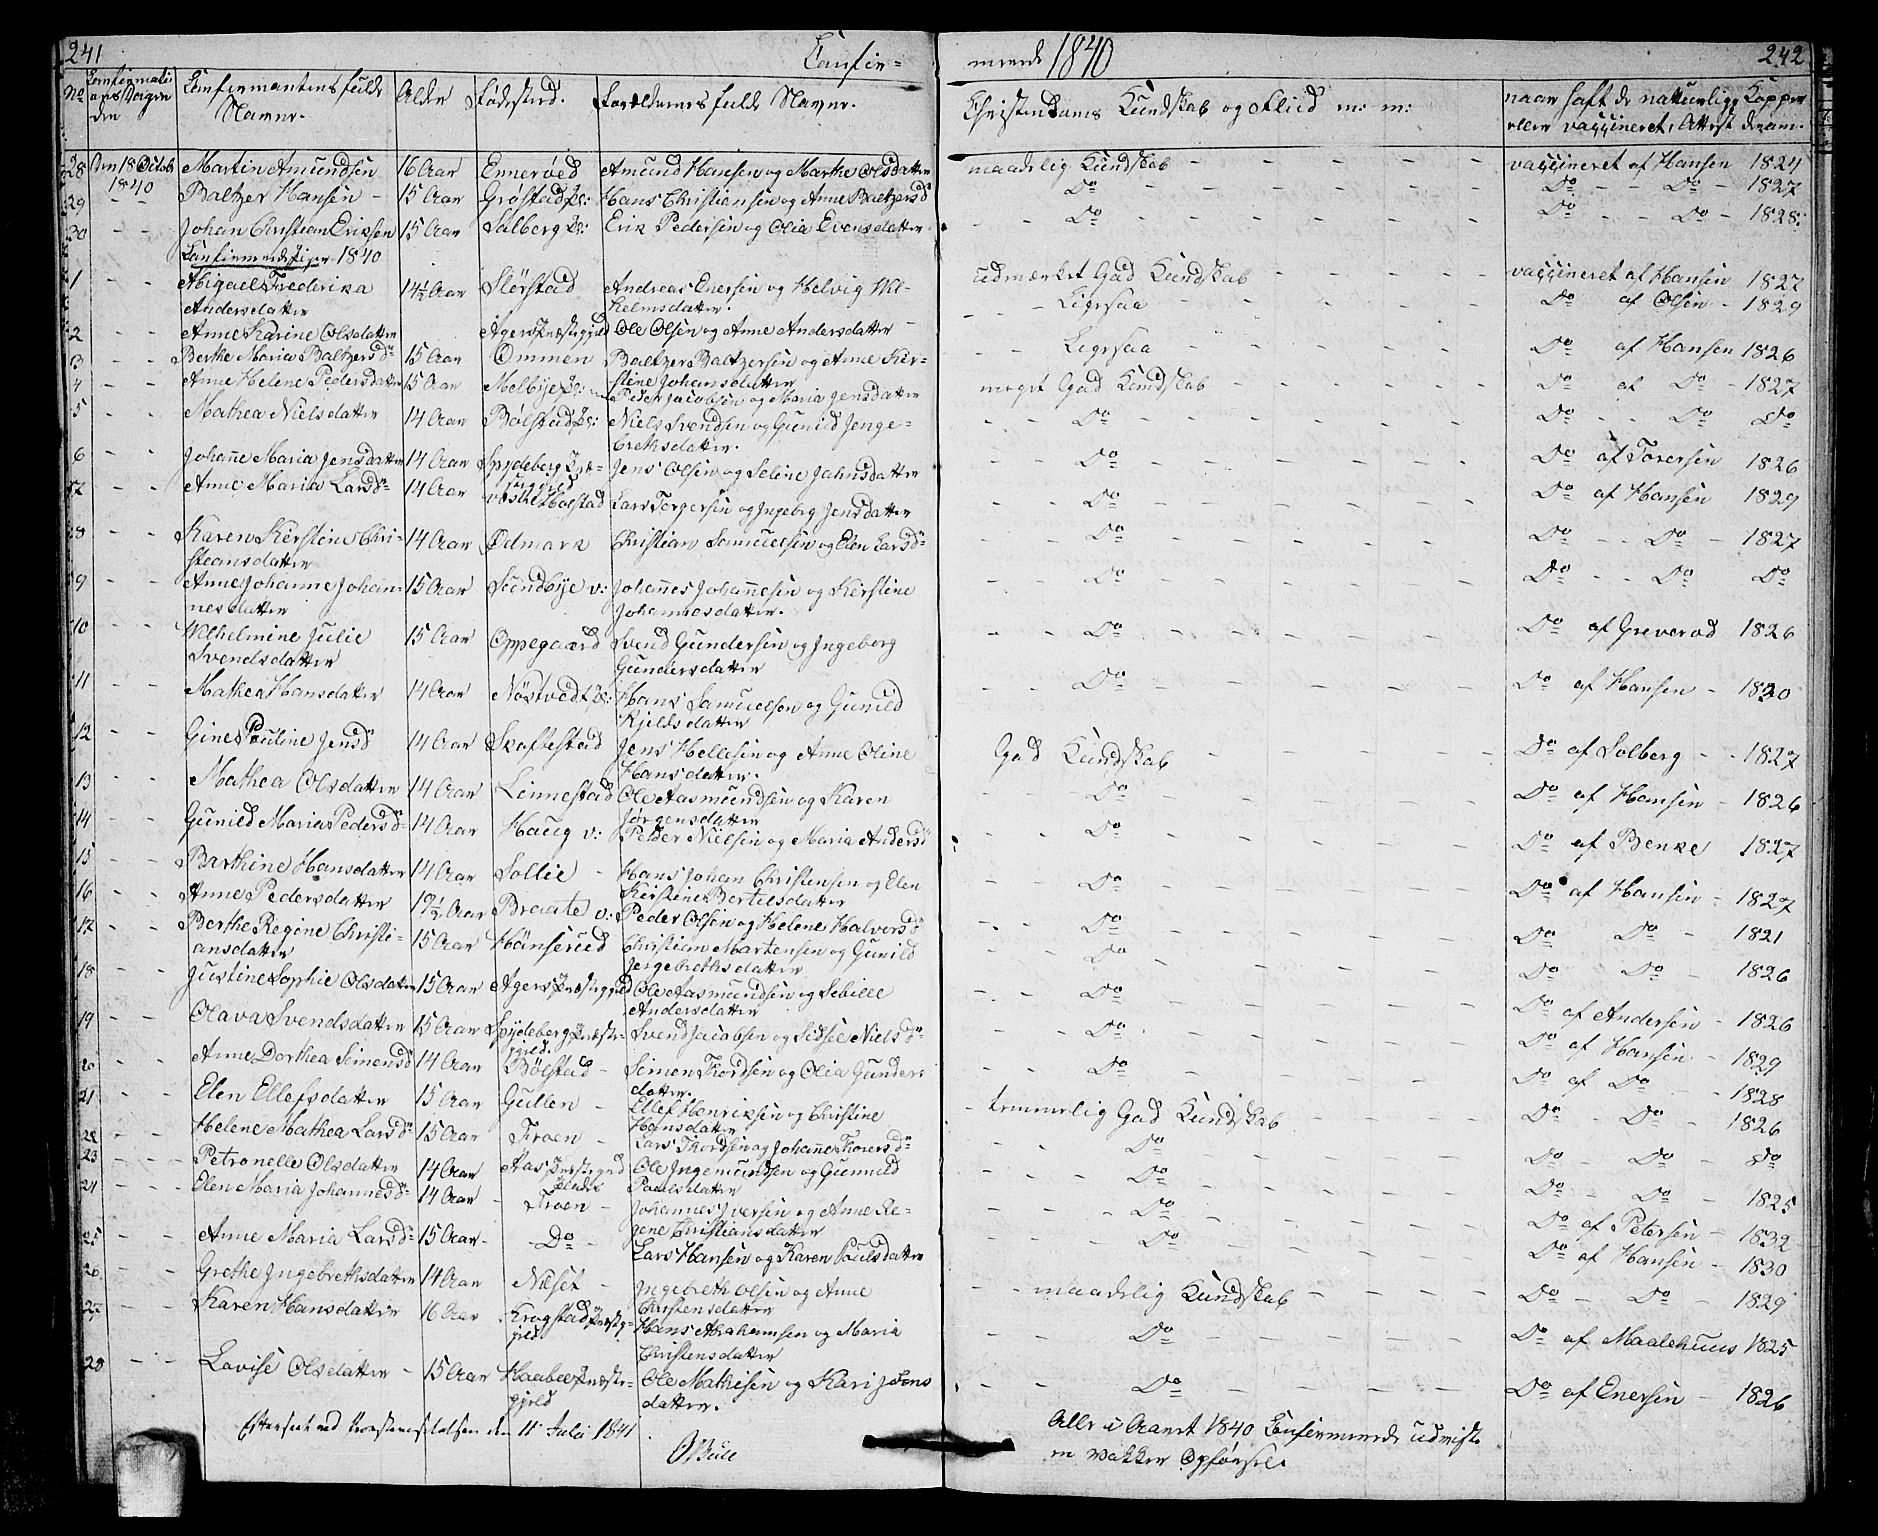 241 Confir- merede 1840 242
No Confirmati Confirmantens fulde Alder Fødested. Forældrenes fulde Navne. Christendoms Kundskab og Fliid m: m: naar haft de naturlige Kopper
ons Dagen Navne. eller vaccineret, Attest derom.
28 Den 18 Octob Martin Amundsen 16 Aar Ennerød Amund Hansen og Marthe Olsdatter maadelig Kundskab vaccineret af Hansen 1824
1840
29 - - Baltzer Hansen 15 Aar Grøstad Hans Christiansen og Anne Baltzersd Do Do - Do - 1827
30 - - Johan Christian Eriksen 15 Aar Solberg Erik Pedersen og Olia Evensdatter Do Do - Do - 1828
Confirmerede Piger 1840
1 - - Abigael Frederika 14½ Aar Slørstad Andreas Enersen og Helvig Wil- udmærket God Kundskab vaccineret af Hansen 1827
Andersdatter helmsdatter.
2 - - Anne Karine Olsdatter Agers Præstegjeld Ole Olsen og Anne Andersdatter - Ligesaa Do af Olsen - 1829
3 - - Berthe Maria Baltzersd 15 Aar Ommen Baltzer Baltzersen og Anne Kir- - Ligesaa Do af Hansen 1826
stine Johansdatter
4 - - Anne Helene Pedersdatter 15 Aar Melbye Peder Jacobsen og Maria Jensdatter meget God Kundskab Do af Do - 1827
5 - - Mathea Nielsdatter 14 Aar Bølstad Niels Svendsen og Gunild Jenge- Do Do - Do Do
brethsdatter.
6 - - Johanne Maria Jensdatter 14 Aar Spydeberg Præ- Jens Olsen og Seline Jahnsdatter Do Do af Torersen 1826
stegjeld
7 - - Anne Maria Larsd 14 Aar Vestre Holstad Lars Torgersen og Ingebrg Jensdatter Do Do af Hansen 1829
8 - - Karen Kirstine Chri- 14 Aar Ødmark Christian Samuelsen og Elen Larsd Do Do - Do - 1827
stiansdatter
9 - - Anne Johanne Johan- 15 Aar Sundbye v: Johannes Johannesen og Kirstine Do Do - Do Do
nesdatter Johannesdatter.
10 - - Wilhelmine Julie 15 Aar Oppegaard Svend Gundersen og Ingeborg Do Do af Greverød 1826
Svendsdatter Gundersdatter
11 - - Mathea Hansdatter 14 Aar Nøstvedt Hans Samuelsen og Gunild Do Do af Hansen -
Kjeldsdatter
12 - - Gine Pauline Jensd 14 Aar Skoftestad Jens Hellesen og Anne Oline God Kundskab Do af Solberg - 1827
Hansdatter.
13 - - Mathea Olsdatter 14 Aar Linnestad Ole Aasmundsen og Karen Do Do af Hansen - 1826
Jørgensdatter
14 - - Gunild Maria Pedersd 14 Aar Haug v: Peder Nielsen og Maria Andersd Do Do af Benke 1827
15 - - Barthine Hansdatter 14 Aar Sollie - Hans Johan Christensen og Elen Do Do af Hansen - 1827
Kirstine Bertelsdatter
16 - - Anne Pedersdatter 19½ Aar Braate v: Peder Olsen og Helene Halvorsd Do Do Do - 1821
17 - - Berthe Regine Christi- 15 Aar Hønserud Christian Martensen og Gunild Do Do Do - 1826
ansdatter Jergebrethsdatter
18 - - Justine Sophie Olsdatter 15 Aar Agers Præstegjeld Ole Aasmundsen og Sebille Do Do af Andersen - 1826
Andersdatter
19 - - Olava Svendsdatter 15 Aar Spydeberg Præste- Svend Jacobsen og Sidsel Nielsd Do Do af Hansen - 1829
gjeld.
20 - - Anne Dorthea Simensd 14 Aar Bølstad - Simen Thordsen og Olia Gunders Do Do af Do - 1828
datter.
21 - - Elen Ellefsdatter 15 Aar Gullen - Ellef Henriksen og Christine temmelig God Kundskab Do - Do - 1826
Hansdatter
22 - - Helene Mathea Larsd 15 Aar Froen - Lars Thordsen og Johanne Thorersd Do Do - Do - Do
23 - - Petronelle Olsdatter 14 Aar Aas Præstegjeld Ole Ingemundsen og Gunnild Do Do - Do - 1825
Poulsdatter
24 - - Elen Maria Johannesd 14 Aar Froen - Johannes Iversen og Anne Re- Do Do af Petersen - 1832
gene Christiansdatter
25 - - Anne Maria Larsd 15 Aar - Do - Lars Hansen og Karen Poulsdatter Do Do af Hansen - 1830
26 - - Grethe Ingebrethsdatter 14 Aar Næset - Ingebreth Olsen og Anne maadelig Kundskab Do - Do - 1829
Christensdatter
27 - - Karen Hansdatter 16 Aar Krogstad Præsteg- Hans Abrahamsen og Maria Do Do af Maalehuus 1825
jeld Christensdatter
28 - - Lovise Olsdatter - 15 Aar Haabøl Præste- Ole Mathisen og Kari Johns Do Do af Enersen - 1826
gjeld datter.
Efterseet ved Provstevisitatsen den 11 Julii 1841.
Alle i Aaret 1840 Confirmerede udviste
en vakker Opførsel.